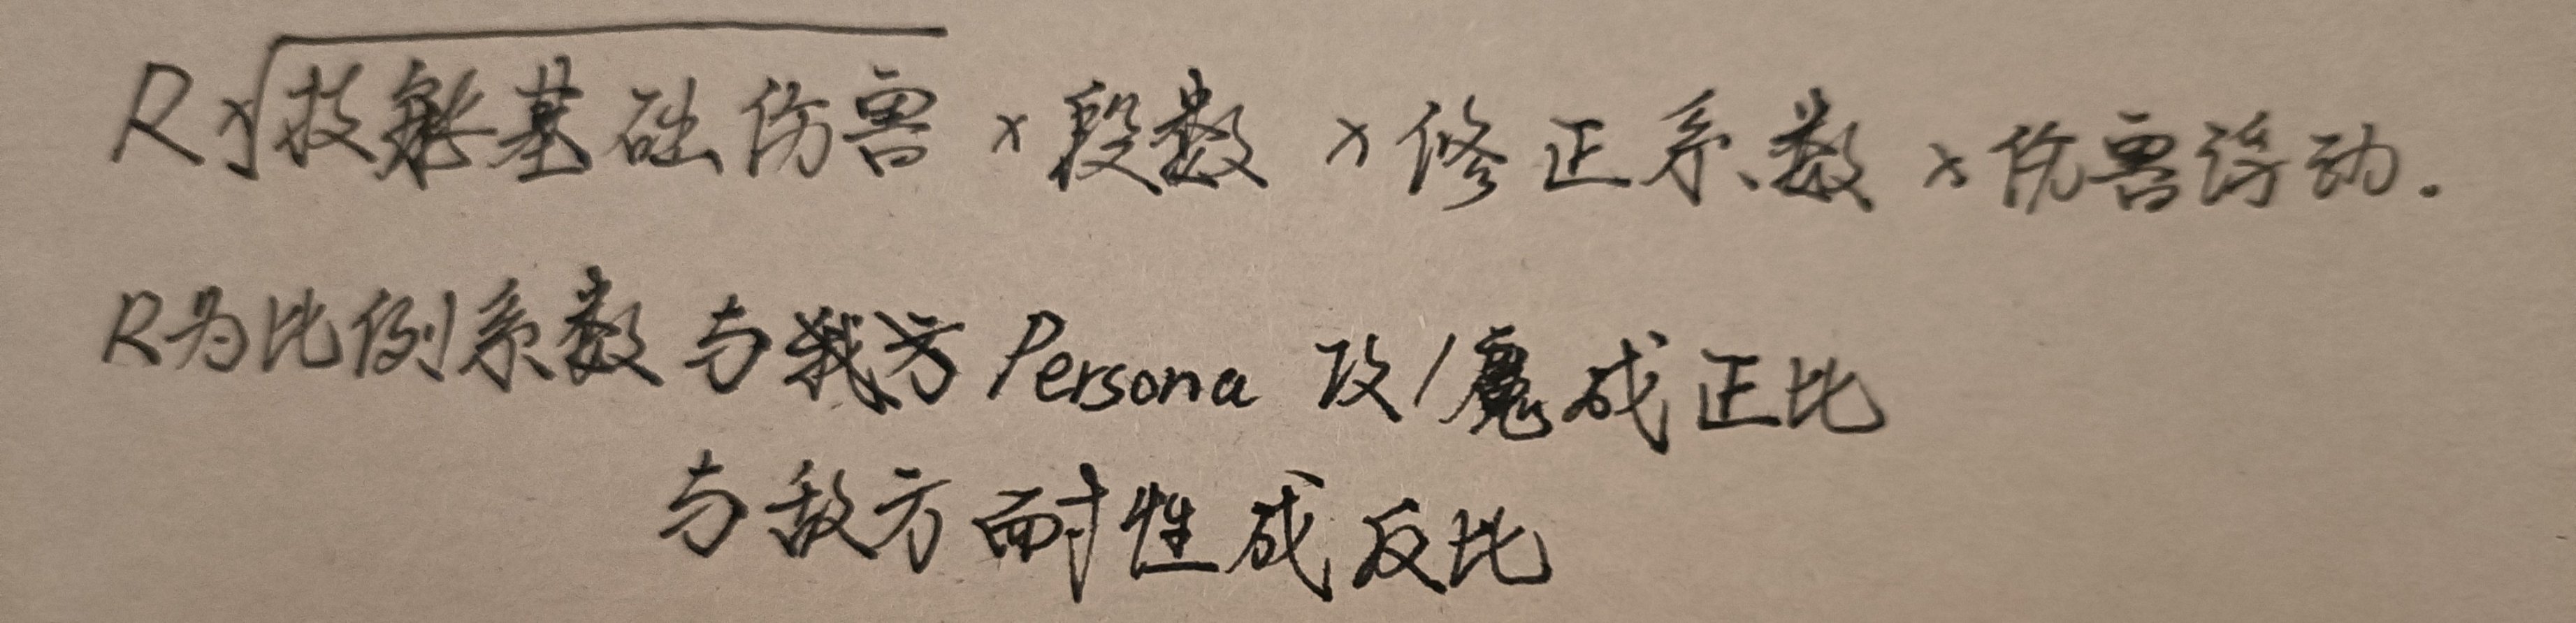 R×√技能基础伤害 × 段数 × 修正系数 × 伤害浮动.
R为比例系数 与我方 Persona 攻/魔成正比
与敌方耐性成反比